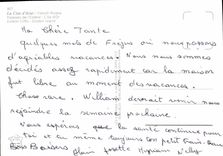 La Côte d'Azur
Ma Chère Tante
Quelques mots de Fréjus où nous passons
d'agréables vacances. Nous nous sommes
décidés assez rapidement car la maison
fut libre au moment des vacances.
chose rare. William devrait venir nous
rejoindre la semaine prochaine.
Nous espérons que la santé continue pour
toi et au mieux
Bons Baisers